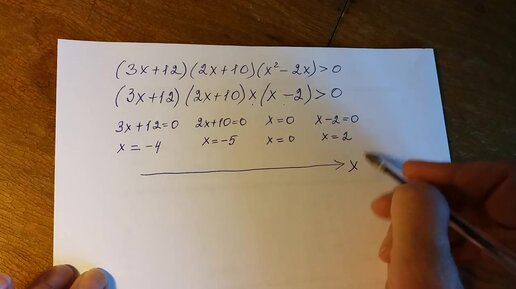 (3x+12)(2x+10)(x²-2x)>0
(3x+12)(2x+10)x(x-2)>0
3x+12=0 2x+10=0 x=0 x-2=0
x=-4 x=-5 x=0 x=2
x